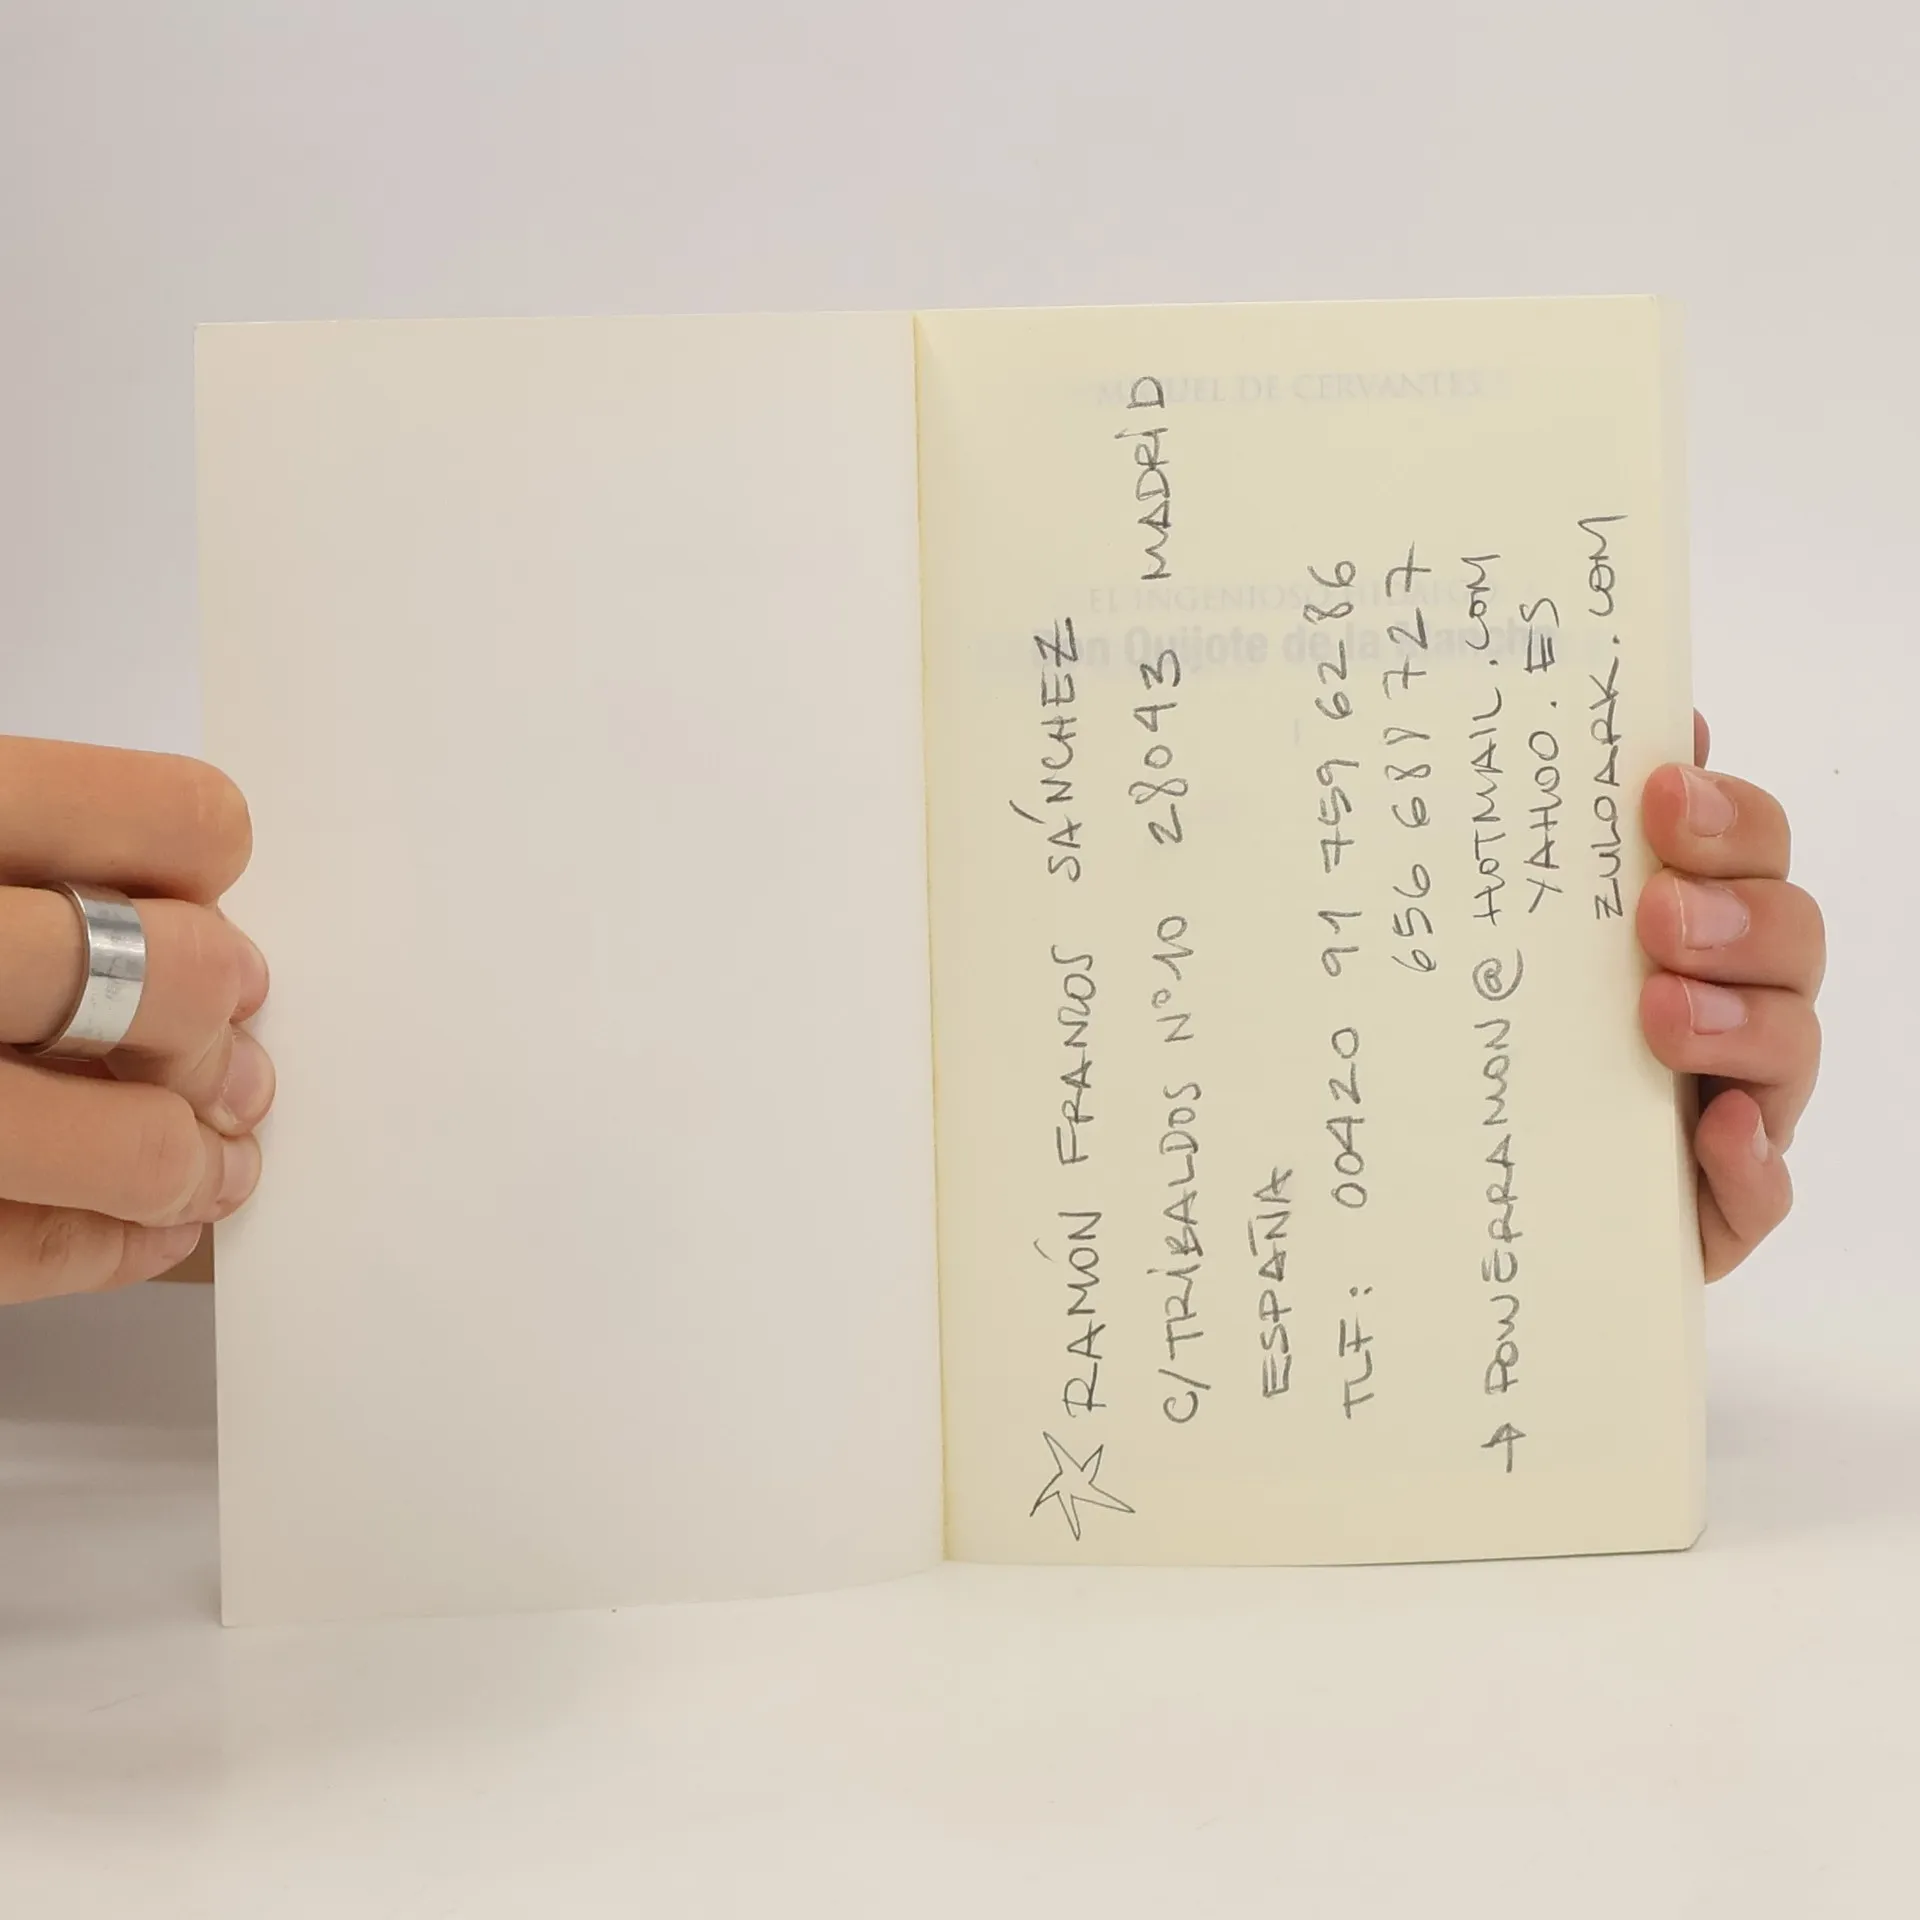 RAMÓN FRANZOS SÁNCHEZ
C/ TRIBALDOS Nº 10 28043 MADRID
ESPAÑA
TLF: 00420 91 759 62 86
656 681 727
→ POWERRAMON@HOTMAIL.COM
YAHOO.ES
ZULOARK.COM
MIGUEL DE CERVANTES
EL INGENIOSO HIDALGO
Don Quijote de la Mancha
I